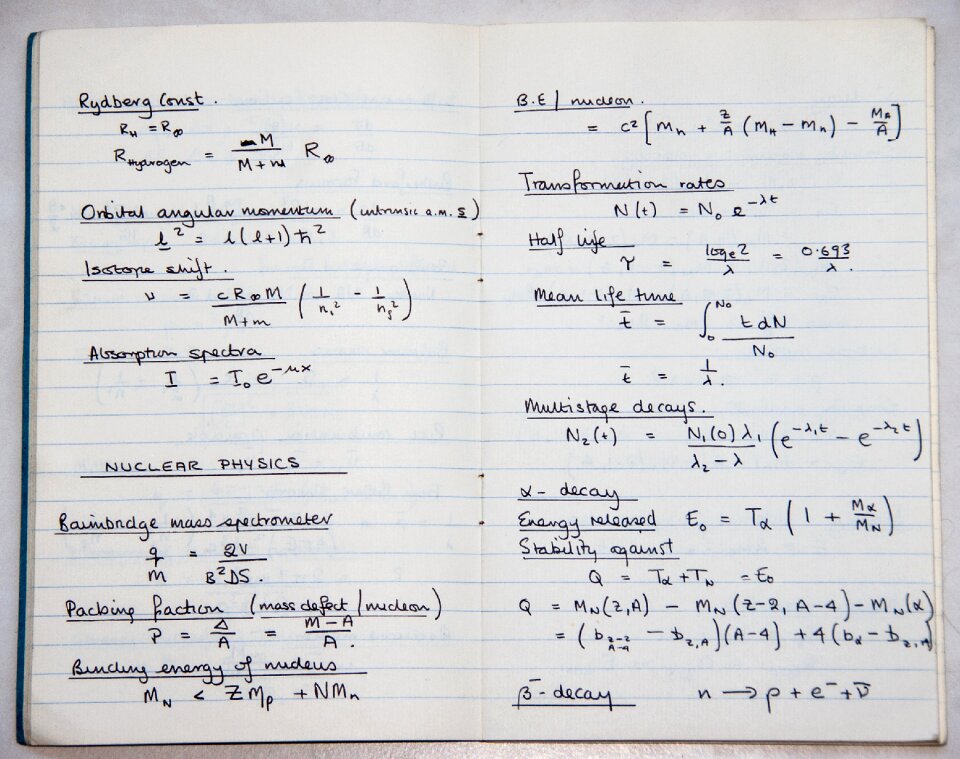 Rydberg Const.
R_H = R_∞
R_Hydrogen = M / (M + m) R_∞
Orbital angular momentum (intrinsic a.m. s)
l² = l(l+1) ħ²
Isotope shift.
ν = cR_∞M / (M+m) (1/n_i² - 1/n_f²)
Absorption spectra
I = I₀ e^(-μx)
NUCLEAR PHYSICS
Bainbridge mass spectrometer
q/m = 2V / B²DS.
Packing fraction (mass defect/nucleon)
P = Δ/A = (M-A)/A.
Binding energy of nucleus
M_N < ZM_p + NM_n
B.E / nucleon.
= c² [m_n + Z/A (m_H - m_n) - M_A/A]
Transformation rates
N(t) = N₀ e^(-λt)
Half life
τ = log_e 2 / λ = 0.693 / λ.
Mean life time
t̄ = ∫₀^N₀ t dN / N₀
t̄ = 1/λ.
Multistage decays.
N₂(t) = N₁(0) λ₁ / (λ₂ - λ) (e^(-λ₁t) - e^(-λ₂t))
α- decay
Energy released E₀ = T_α (1 + M_α/M_N)
Stability against
Q = T_α + T_N = E₀
Q = M_N(Z,A) - M_N(Z-2, A-4) - M_N(α)
= (b_(Z-2, A-4) - b_(Z,A))(A-4) + 4(b_α - b_(Z,A))
β⁻- decay n → p + e⁻ + ν̄